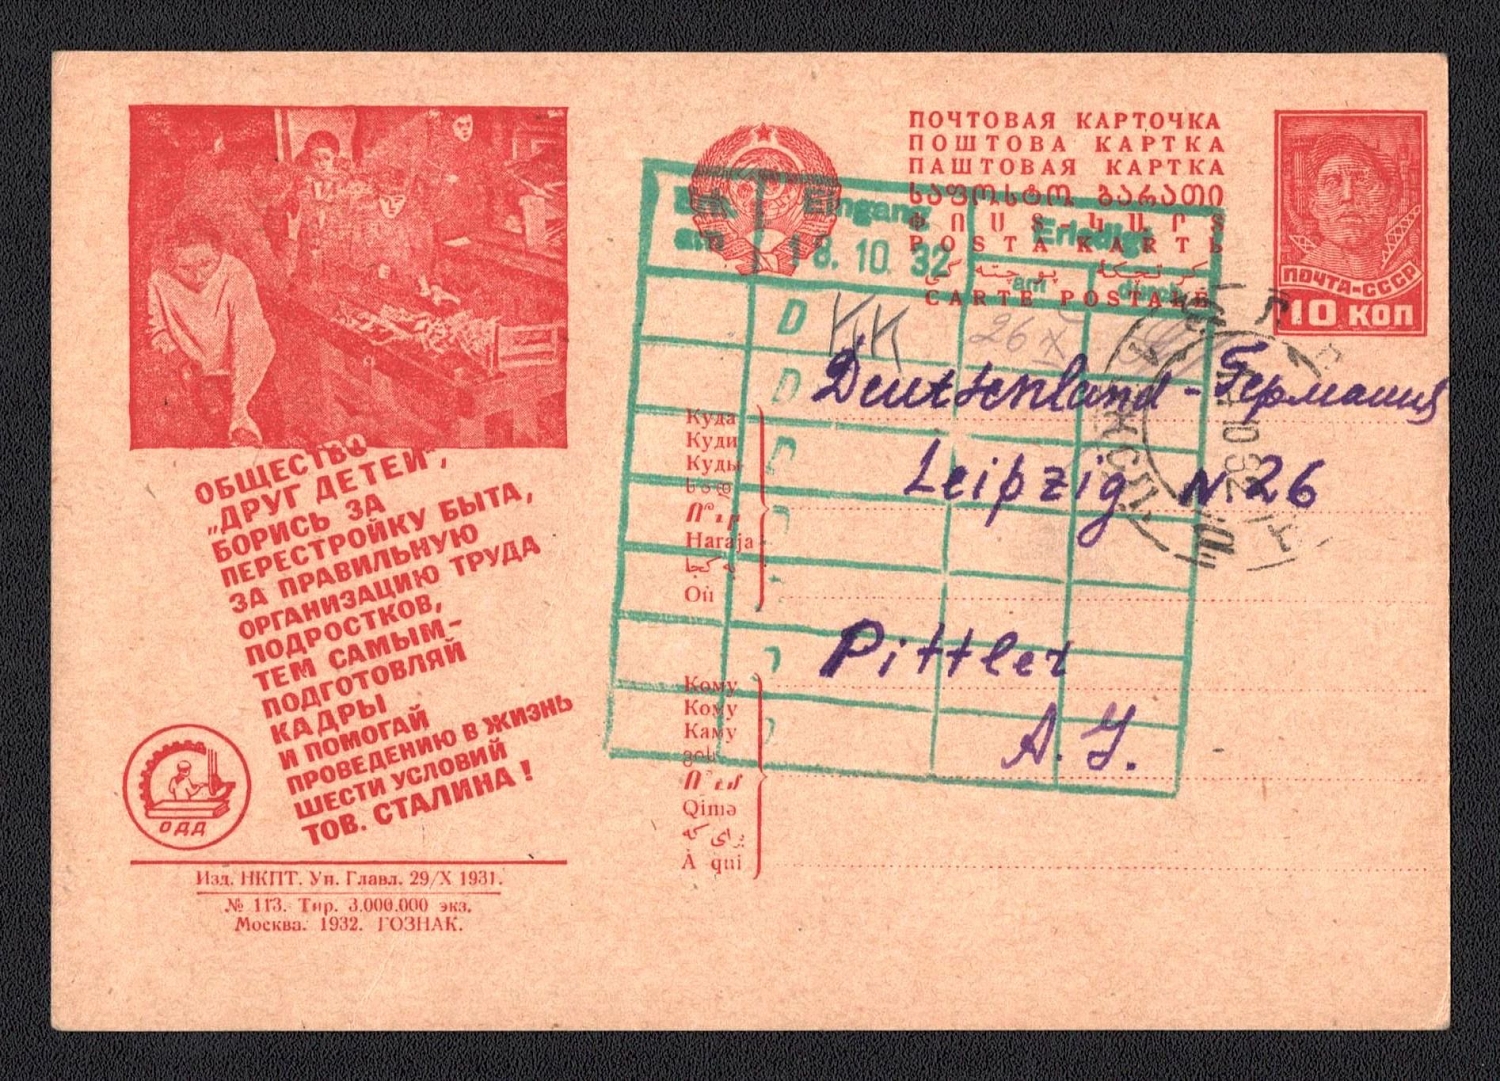 ОБЩЕСТВО
„ДРУГ ДЕТЕЙ",
БОРИСЬ ЗА
ПЕРЕСТРОЙКУ БЫТА,
ЗА ПРАВИЛЬНУЮ
ОРГАНИЗАЦИЮ ТРУДА
ПОДРОСТКОВ,
ТЕМ САМЫМ-
ПОДГОТОВЛЯЙ
КАДРЫ
И ПОМОГАЙ
ПРОВЕДЕНИЮ В ЖИЗНЬ
ШЕСТИ УСЛОВИЙ
ТОВ. СТАЛИНА!
ОДД
Изд. НКПТ. Уп. Главл. 29/X 1931.
№ 113. Тир. 3.000.000 экз.
Москва. 1932. ГОЗНАК.
ПОЧТОВАЯ КАРТОЧКА
ПОШТОВА КАРТКА
ПАШТОВАЯ КАРТКА
ՓՈՍՏ ՔԱՐՏ
POSTA KARTЬ
CARTE POSTALE
ПОЧТА-СССР
10 КОП
Eingang
18. 10. 32
Erledigt
am
durch
D KK
26 X
D
D
Куда
Куди
Куды
Haraja
Où
Deutschland - Германия
Leipzig N 26
Pittler
A. G.
Кому
Кому
Каму
Qimə
À qui